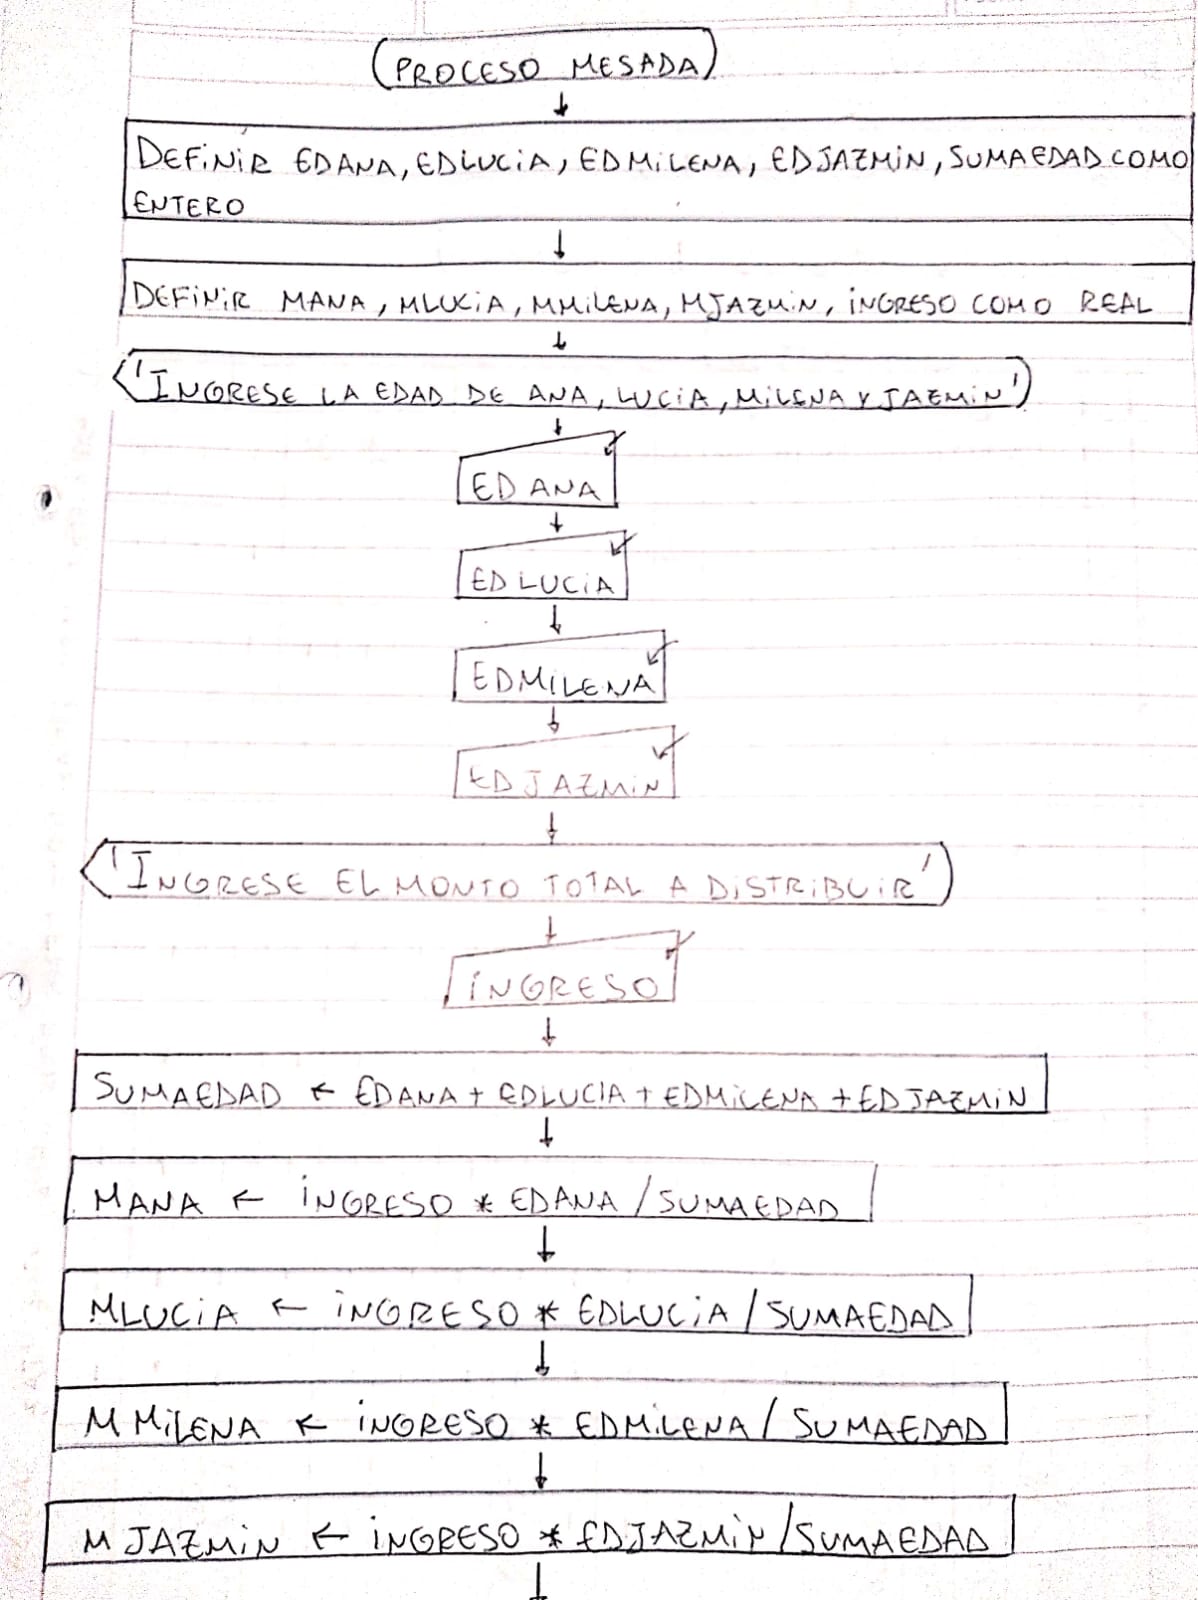 PROCESO MESADA
DEFINIR EDANA, EDLUCIA, EDMILENA, EDJAZMIN, SUMAEDAD COMO
ENTERO
DEFINIR MANA, MLUCIA, MMILENA, MJAZMIN, INGRESO COMO REAL
'INGRESE LA EDAD DE ANA, LUCIA, MILENA Y JAZMIN'
EDANA
EDLUCIA
EDMILENA
EDJAZMIN
'INGRESE EL MONTO TOTAL A DISTRIBUIR'
INGRESO
SUMAEDAD ← EDANA + EDLUCIA + EDMILENA + EDJAZMIN
MANA ← INGRESO * EDANA / SUMAEDAD
MLUCIA ← INGRESO * EDLUCIA / SUMAEDAD
MMILENA ← INGRESO * EDMILENA / SUMAEDAD
MJAZMIN ← INGRESO * EDJAZMIN / SUMAEDAD